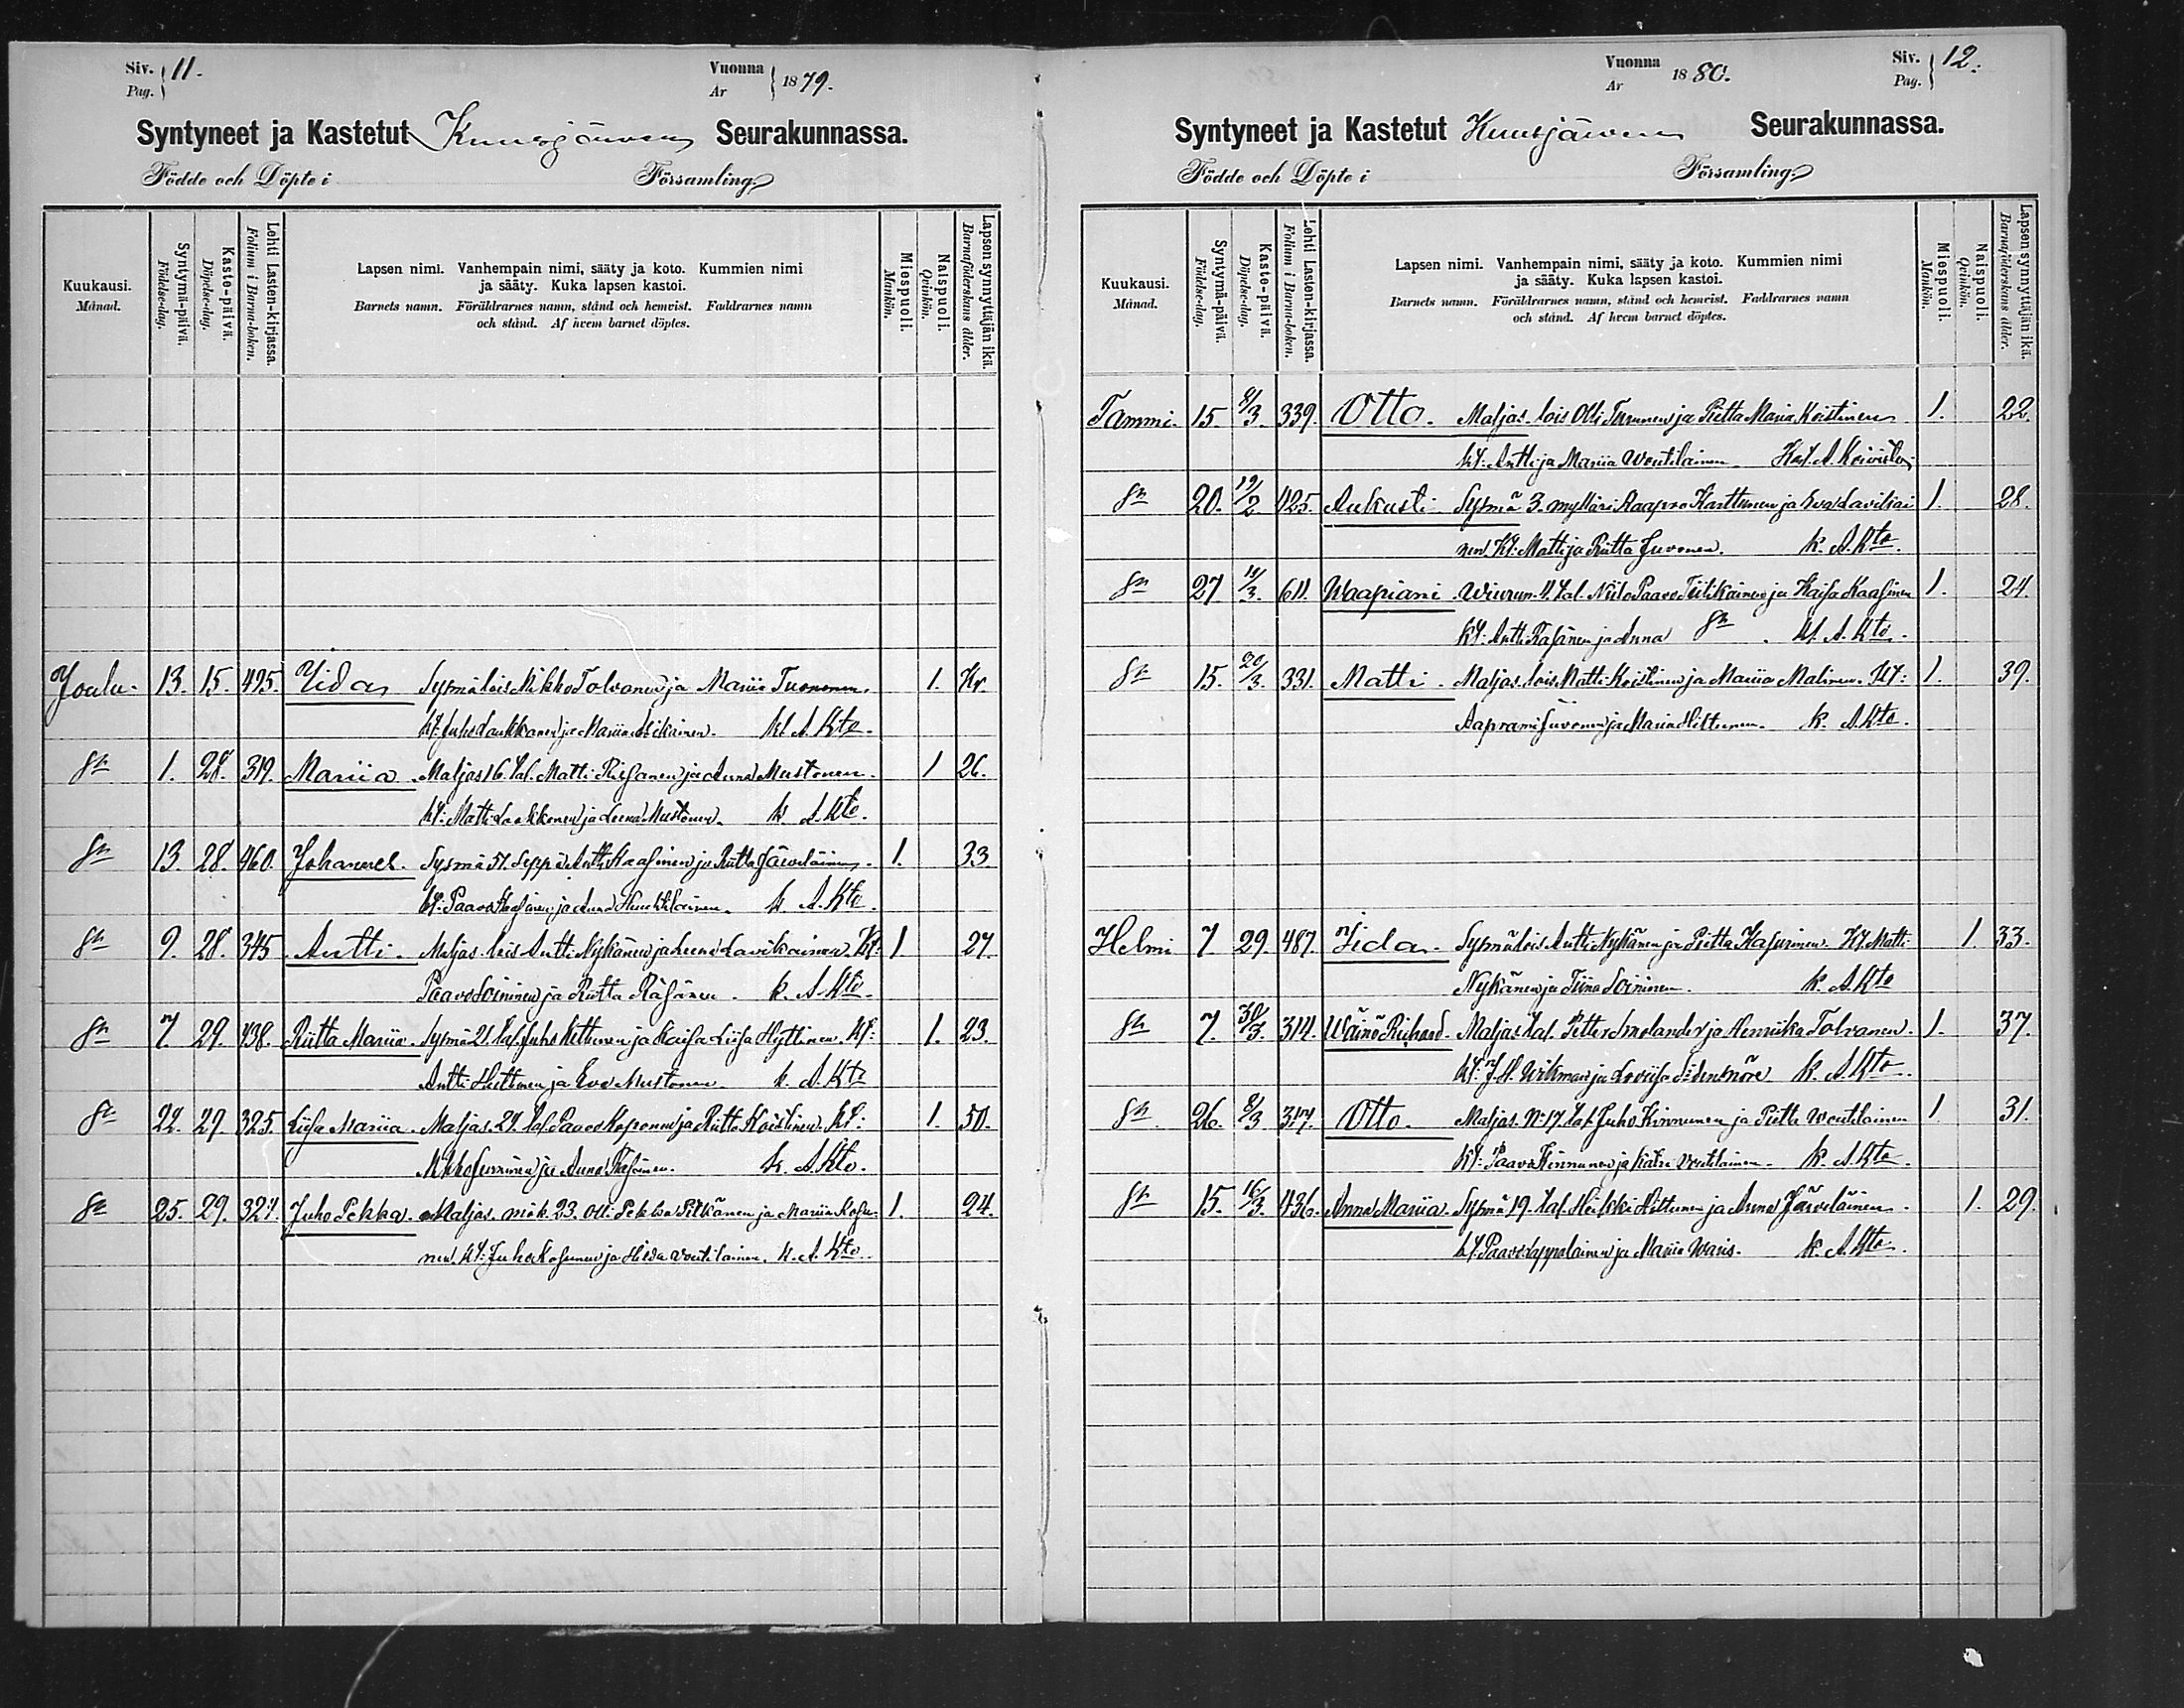 Siv. Pag. 11.
Vuonna Ar 1879.
Syntyneet ja Kastetut Kuusjärven Seurakunnassa.
Födde och Döpte i Församling.
Kuukausi. Månad.
Syntymä-päivä. Födelse-dag.
Kaste-päivä. Döpelse-dag.
Lehti Lasten-kirjassa. Folium i Barna-boken.
Lapsen nimi. Vanhempain nimi, sääty ja koto. Kummien nimi
ja sääty. Kuka lapsen kastoi.
Barnets namn. Föräldrarnes namn, stånd och hemvist. Faddrarnes namn
och stånd. Af hvem barnet döptes.
Miespuoli. Mankön.
Naispuoli. Qvinkön.
Lapsen synnyttäjän ikä. Barnaföderskans ålder.
Joulu. 13. 15. 495. Iida Sysmä lois Mikko Tolvanen ja Maria Tuononen. 1. Kr.
KK: Juho Laukkanen ja Maria K. A. Kto.
Sn 1. 28. 319. Mariia Maljas 16. tal. Matti Piipanen ja Anna Mustonen. 1 26.
KK: Matti Laakkonen ja Leena Mustonen. K. A. Kto.
Sn 13. 28. 460. Johannes. Sysmä 51. seppä Antti Kaasinen ja Riitta Järveläinen. 1. 33
KK: Paavo Kaasinen ja Anna K. A. Kto.
Sn 9. 28. 345 Antti. Maljas. lois Antti Nykänen ja Leena Lavikainen. KK: 1. 27.
Paavo Soininen ja Riitta Räsänen. K. A. Kto.
Sn 7. 29. 438. Riitta Mariia. Sysmä 21. tal. Juho Hettunen ja Kaisa Liisa Hyttinen. KK: 1. 23.
Antti Hettunen ja Eva Mustonen K. A. Kto
Sn 22. 29. 325. Liisa Mariia. Maljas. 27. tal. Paavo Koponen ja Riitta Koistinen. KK: 1. 50.
Mikko ja Anna Räsänen. K. A. Kto.
Sn 25. 29. 327. Juho Pekka. Maljas. mäk. 23. Olli Pekka Pitkänen ja Mariia Kosu- 1. 24.
nen. KK: Juho Kosunen ja Hilda Voutilainen. K. A. Kto.
Vuonna Ar 1880.
Siv. Pag. 12.
Syntyneet ja Kastetut Kuusjärven Seurakunnassa.
Födde och Döpte i Församling.
Kuukausi. Månad.
Syntymä-päivä. Födelse-dag.
Kaste-päivä. Döpelse-dag.
Lehti Lasten-kirjassa. Folium i Barna-boken.
Lapsen nimi. Vanhempain nimi, sääty ja koto. Kummien nimi
ja sääty. Kuka lapsen kastoi.
Barnets namn. Föräldrarnes namn, stånd och hemvist. Faddrarnes namn
och stånd. Af hvem barnet döptes.
Miespuoli. Mankön.
Naispuoli. Qvinkön.
Lapsen synnyttäjän ikä. Barnaföderskans ålder.
Tammi. 15. 8/3. 339. Otto. Maljas. lois Olli Turunen ja Riitta Maria Koistinen 1. 22.
KK: Antti ja Mariia Voutilainen A. Koivisto
Sn 20. 19/2 425. Aukusti Sysmä 3. mylläri Kaapro Karttunen ja Eva Lavikai 1. 28.
nen. KK: Matti ja Riitta Juvonen. K. A. Kto.
Sn 27. 11/3. 611. Waapiani. Wiurun. 11. tal. Niilo Paavo Tiilikainen ja Kaisa Kaasinen 1. 24.
KK: Antti Räsänen ja Anna Sn. K. A. Kto.
Sn 15. 20/3. 331. Matti. Maljas. lois Matti Koistinen ja Mariia Malinen. KK: 1. 39.
Aaprami Juvonen ja Maria Hiltunen. K. A. Kto.
Helmi 7. 29. 487. Iida. Sysmä lois Antti Nykänen ja Riitta Kasurinen. KK. Matti 1. 33.
Nykänen ja Tiina Soininen. K. A. Kto
Sn 7. 30/3. 314. Wäinö Richard. Maljas tal. Petter Smolander ja Henriika Tolvanen. 1. 37.
KK: J. H. Wikman ja Loviisa K. A. Kto.
Sn 26. 8/3 317. Otto. Maljas. No 17. tal. Juho Kinnunen ja Riitta Voutilainen 1. 31.
KK: Paavo Kinnunen ja Katri Voutilainen. K. A. Kto.
Sn 15. 16/3. 436. Anna Mariia. Sysmä 19. tal. Heikki Hettunen ja Anna Järveläinen. 1. 29.
KK. Paavo Lappalainen ja Mariia Waris. K. A. Kto.